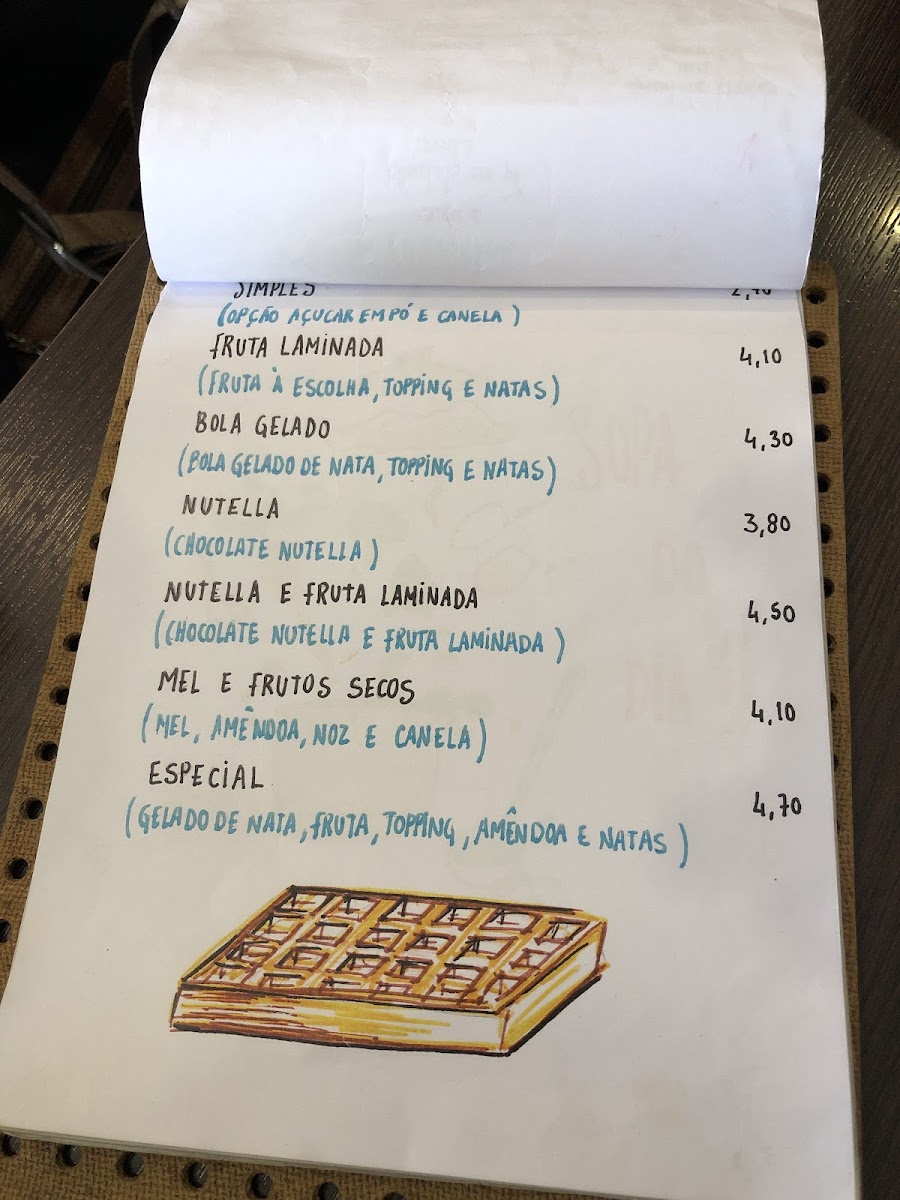 SIMPLES
(OPÇÃO AÇUCAR EM PÓ E CANELA)
FRUTA LAMINADA 4,10
(FRUTA À ESCOLHA, TOPPING E NATAS)
BOLA GELADO 4,30
(BOLA GELADO DE NATA, TOPPING E NATAS)
NUTELLA 3,80
(CHOCOLATE NUTELLA)
NUTELLA E FRUTA LAMINADA 4,50
(CHOCOLATE NUTELLA E FRUTA LAMINADA)
MEL E FRUTOS SECOS 4,10
(MEL, AMÊNDOA, NOZ E CANELA)
ESPECIAL 4,70
(GELADO DE NATA, FRUTA, TOPPING, AMÊNDOA E NATAS)